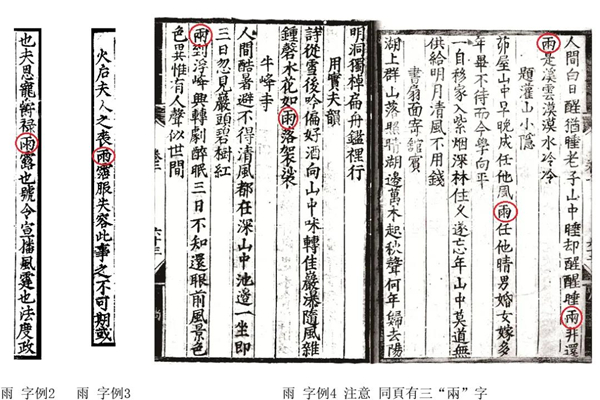 也夫恩寵爵祿雨露也號令宣播風霆也法度政
火后夫人之喪雨霑服失容此事之不可期或
人間白日醒猶睡老子山中睡却醒醒睡兩非還
兩是溪雲漠漠水泠泠
題灌山小隱
茆屋山中早晚成任他風雨任他晴男婚女嫁多
年畢不待而今學向平
一自移家入紫烟深林住久遂忘年山中莫道無
供給明月清風不用錢
書扇面寄館賓
湖上群山落照晴湖邊萬木起秋聲何年歸去陽
明洞獨棹扁舟鑑裡行
用實夫韻
詩從雪後吟偏好酒向山中味轉佳巖瀑隨風雜
鍾磬水花如雨落袈裟
牛峰寺
人間酷暑避不得清風都在深山中池邊一坐即
三日忽見巖頭碧樹紅
兩到浮峰興轉劇醉眠三日不知還眼前風景色
色異惟有人聲似世間
雨 字例2
雨 字例3
雨 字例4 注意 同頁有三“兩”字